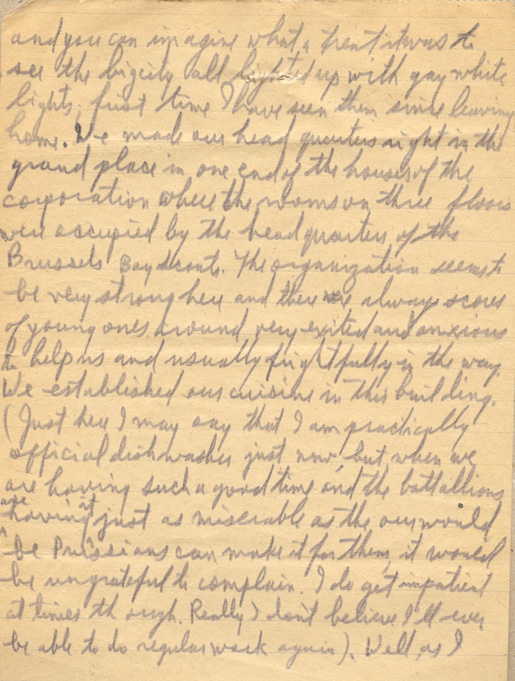 and you can imagine what a treat it was to
see the big city all lighted up with gay white
lights, first time I have seen them since leaving
home. We made our head quarters right in the
grand place in one end of the house of the
corporation where the rooms on three floors
were occupied by the headquarters of the
Brussels Boy Scouts. The organization seems to
be very strong here and there were always scores
of young ones around very exited and anxious
to help us and usually frightfully in the way.
We established our cuisine in this building.
(Just here I may say that I am practically
official dishwasher just now, but when we
are having such a good time and the battallions
are having it just as miserable as the our would
be Prussians can make it for them, it would
be ungrateful to complain. I do get impatient
at times though. Really I don't believe I'll ever
be able to do regular work again). Well, as I